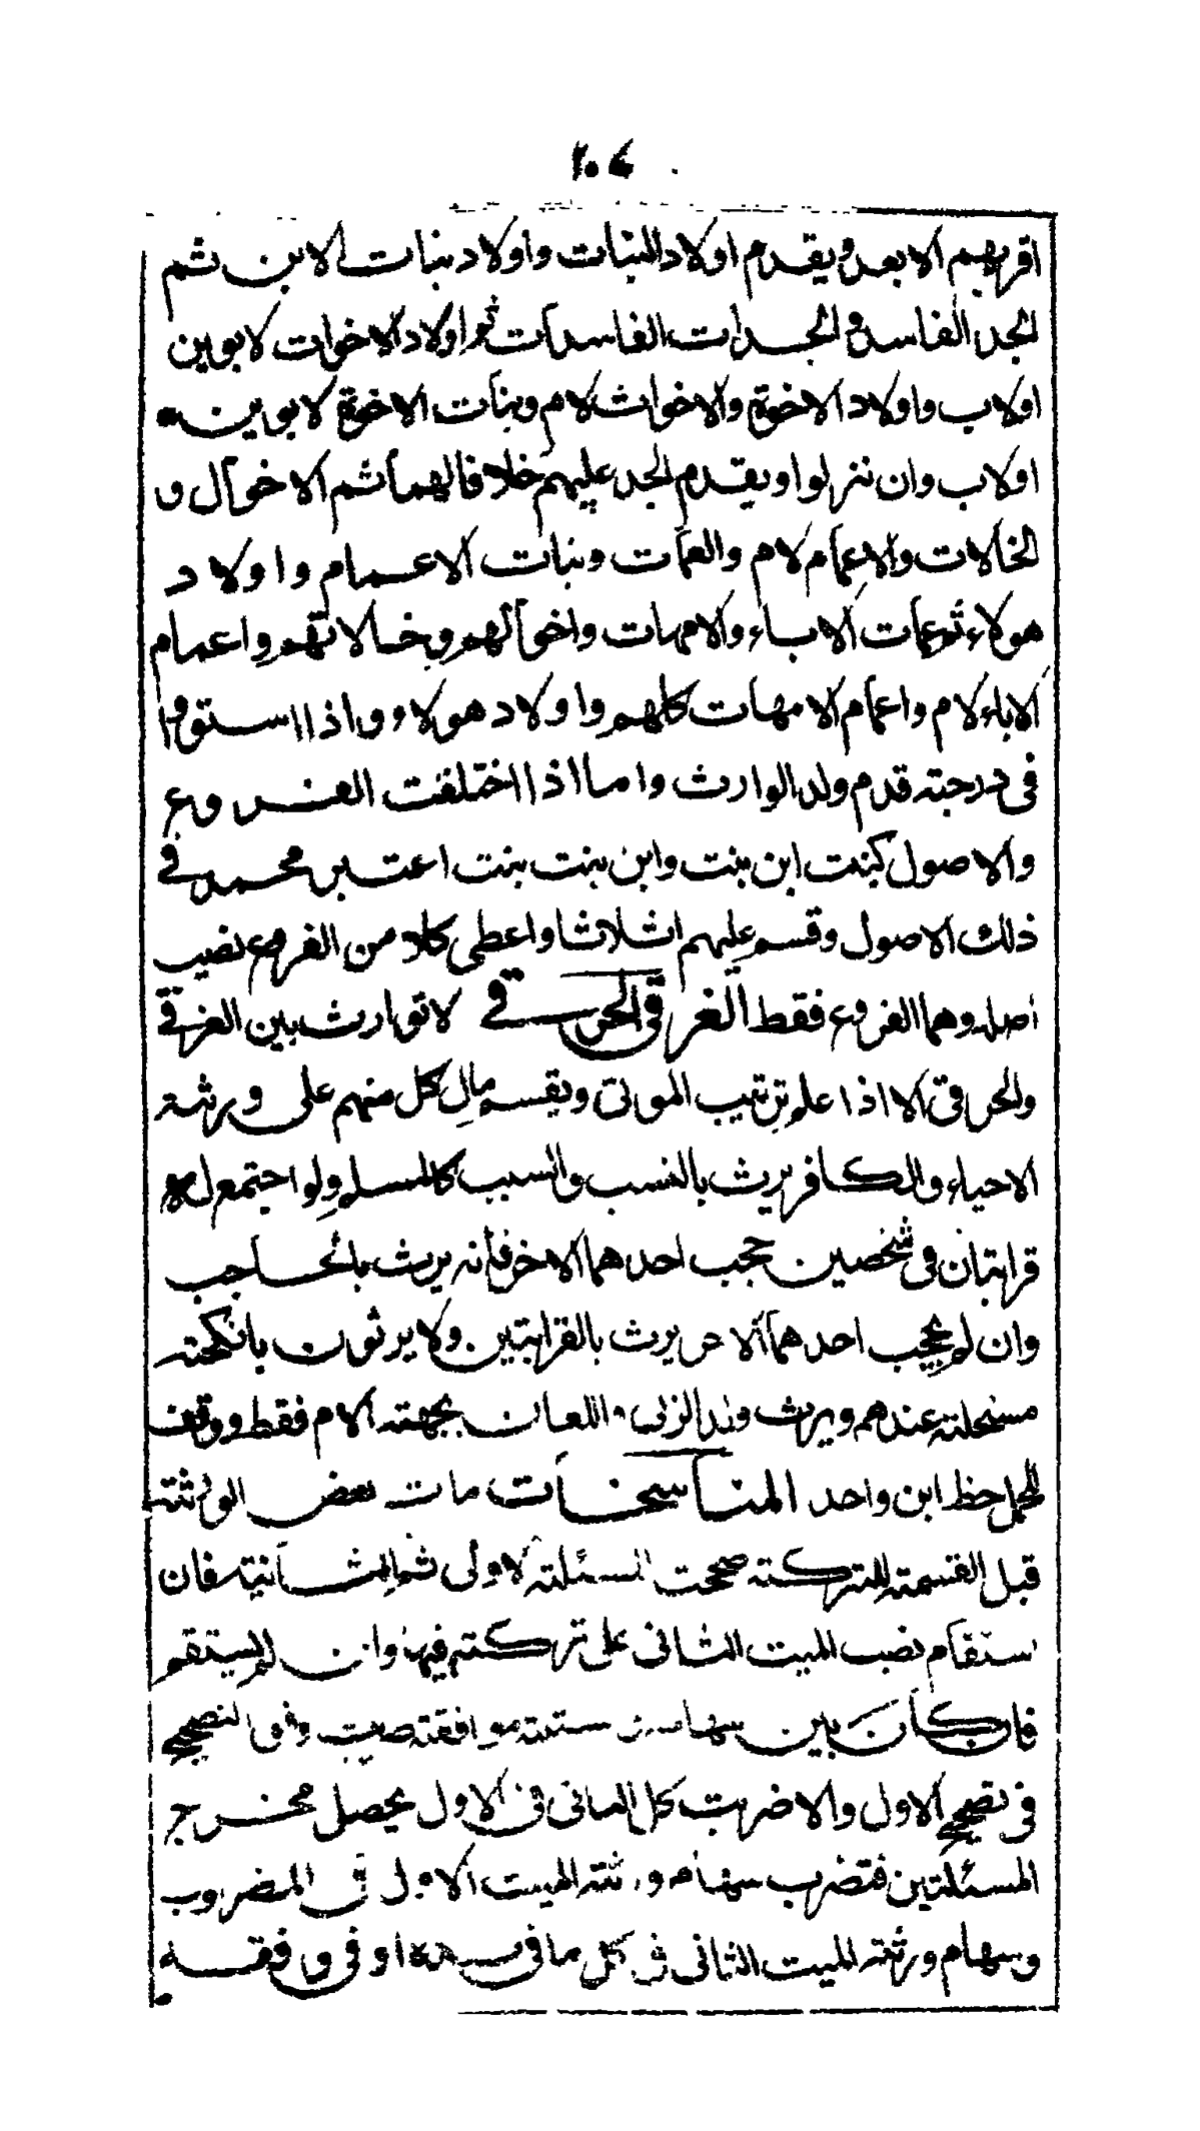 ١٠٤
اقربهم الابعد ويقدم اولاد البنات واولاد بنات الابن ثم
الجد الفاسد والجدات الفاسدات ثم اولاد الاخوات لابوين
اولاب واولاد الاخوة والاخوات لام وبنات الاخوة لابوين
اولاب وان نزلوا ويقدم الجد عليهم خلافا لهما ثم الاخوال و
الخالات والاعمام لام والعمات وبنات الاعمام واولاد
هولاء ثم عمات الاباء والامهات واخوالهم وخالاتهم واعمام
الاباء لام واعمام الامهات كلهم واولاد هولاء واذا استووا
فى درجته قدم ولد الوارث واما اذا اختلفت الفروع
والاصول كبنت ابن بنت وابن بنت بنت اعتبر محمد فى
ذلك الاصول وقسم عليهم اثلاثا واعطى كلا من الفروع نصيب
اصله وهما الفروع فقط الغرقى الحرقى لا توارث بين الغرقى
والحرقى الا اذا علم ترتيب الموتى ويقسم مال كل منهم على ورثته
الاحياء والكافر يرث بالنسب والسبب كالمسلم ولو اجتمع له
قرابتان فى شخصين حجب احدهما الاخر فانه يرث بالحاجب
وان لم يحجب احدهما الاخر يرث بالقرابتين ولا يرثون بانكحته
مستحلته عندهم ويرث ولد الزنى واللعان بجهته الام فقط ووقف
للحمل حظ ابن واحد المناسخات مات بعض الورثته
قبل القسمته للتركته صححت المسئلته الاولى ثم الثانيته فان
ستقام نصب الميت الثانى على تركته فبها وان لم يستقم
فان كان بين سهامه ... موافقته ضربت وفق التصحيح
فى تصحيح الاول والا ضربت كل الثانى فى الاول يحصل مخرج
المسئلتين فتضرب سهام ورثته الميت الاول فى المضروب
وسهام ورثته الميت الثانى فى كل ما فى يده او فى وفقه